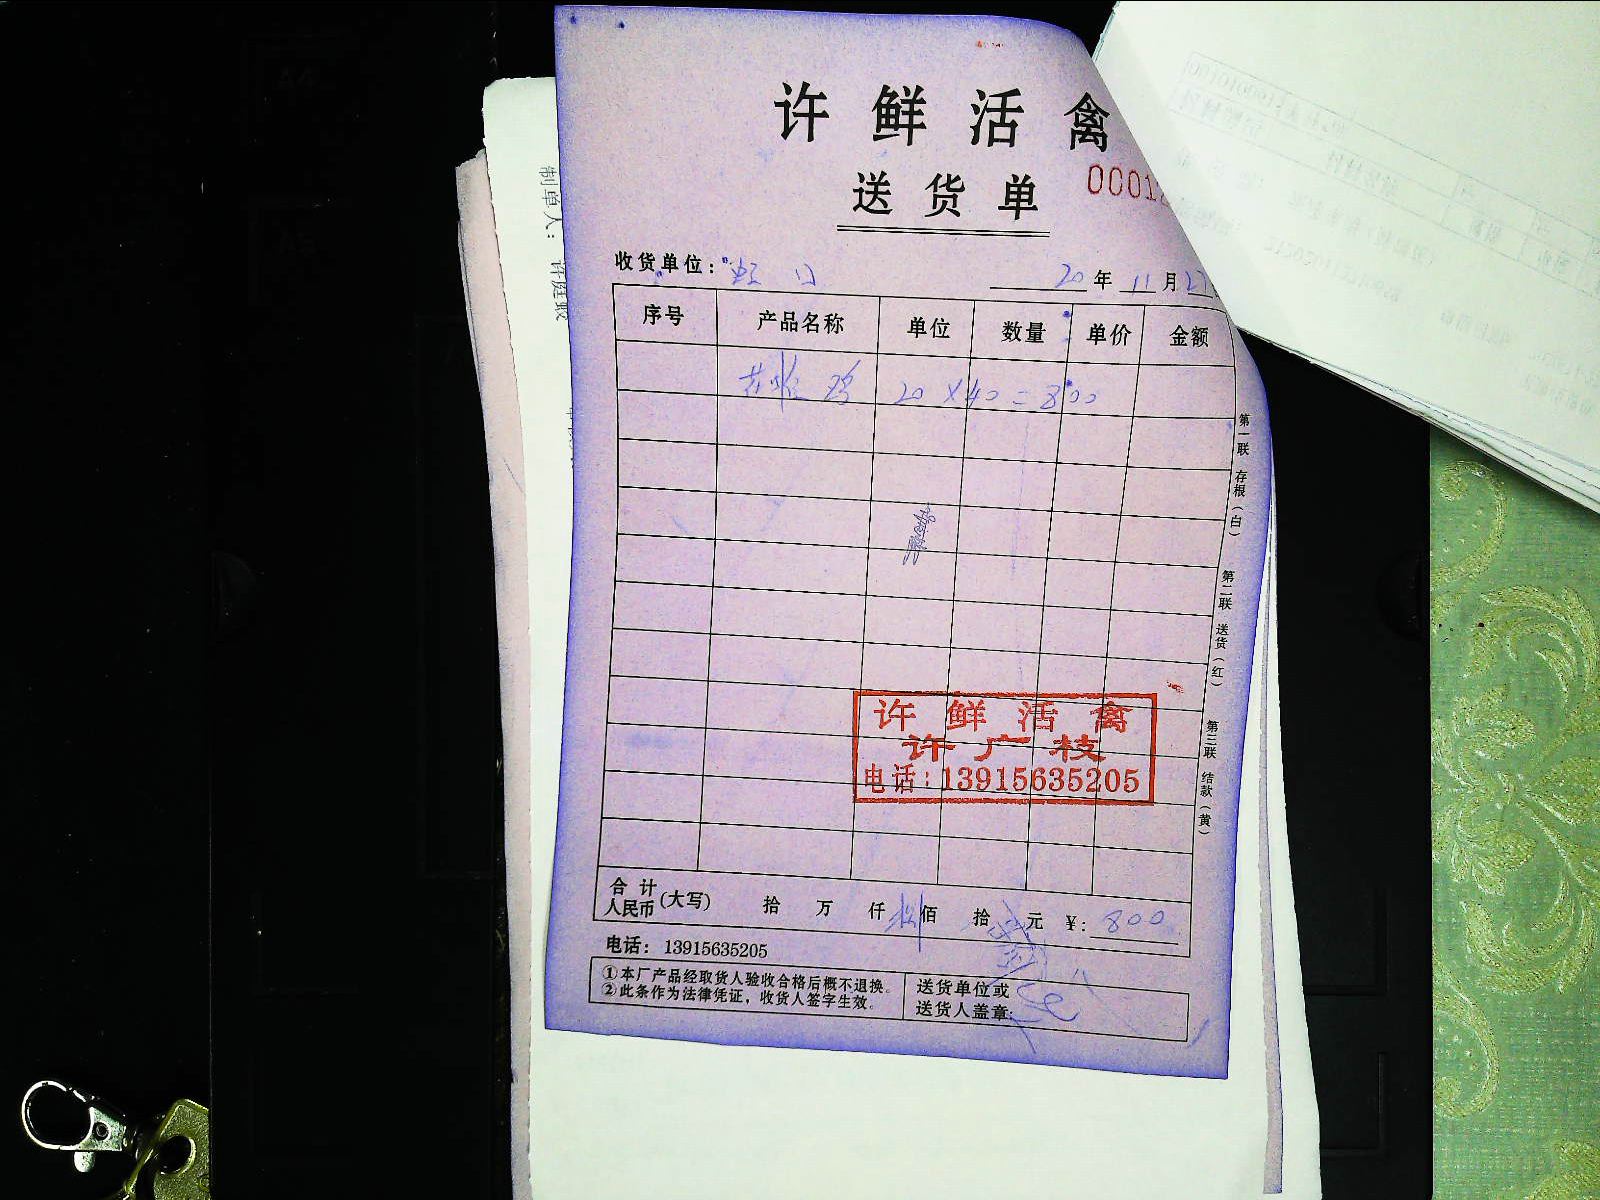 许鲜活禽
送货单
0001
收货单位：虹 20年11月27
序号 产品名称 单位 数量 单价 金额
鸡 20×40=800
许鲜活禽
许广枝
电话：13915635205
合计人民币(大写) 拾 万 仟 捌佰 拾 元 ¥：800
电话：13915635205
①本厂产品经取货人验收合格后概不退换。
②此条作为法律凭证，收货人签字生效。
送货单位或
送货人盖章：
第一联 存根（白）
第二联 送货（红）
第三联 结款（黄）
制单人：许庭